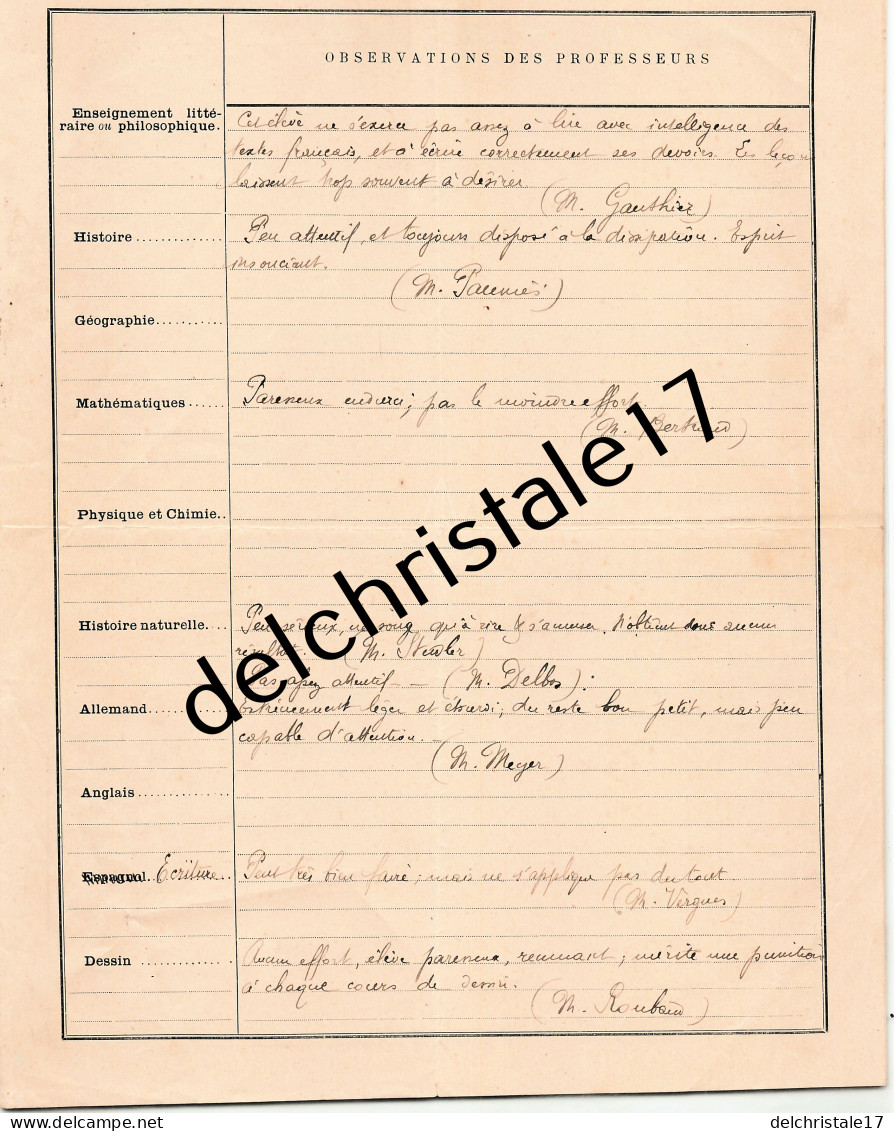 OBSERVATIONS DES PROFESSEURS
Enseignement litté-
raire ou philosophique.
Cet élève ne s'exerce pas assez à lire avec intelligence des
textes français, et à écrire correctement ses devoirs. Les leçons
laissent trop souvent à désirer.
(M. Gauthier)
Histoire
Peu attentif, et toujours disposé à la dissipation. Esprit
insouciant.
(M. Paumès)
Géographie
Mathématiques
Paresseux endurci; pas le moindre effort
(M. Bertrand)
Physique et Chimie
Histoire naturelle
Peu sérieux, ne songe qu'à rire & s'amuser. N'obtient donc aucun
résultat. (M. Steudler)
Pas assez attentif — (M. Delbos).
Allemand
Extrêmement léger et étourdi; du reste bon petit, mais peu
capable d'attention.
(M. Meyer)
Anglais
Espagnol. Ecriture
Peut très bien faire; mais ne s'applique pas du tout
(M. Vergnes)
Dessin
Aucun effort, élève paresseux, remuant; mérite une punition
à chaque cours de dessin.
(M. Roubaud)
delchristale17
delcampe.net
delchristale17